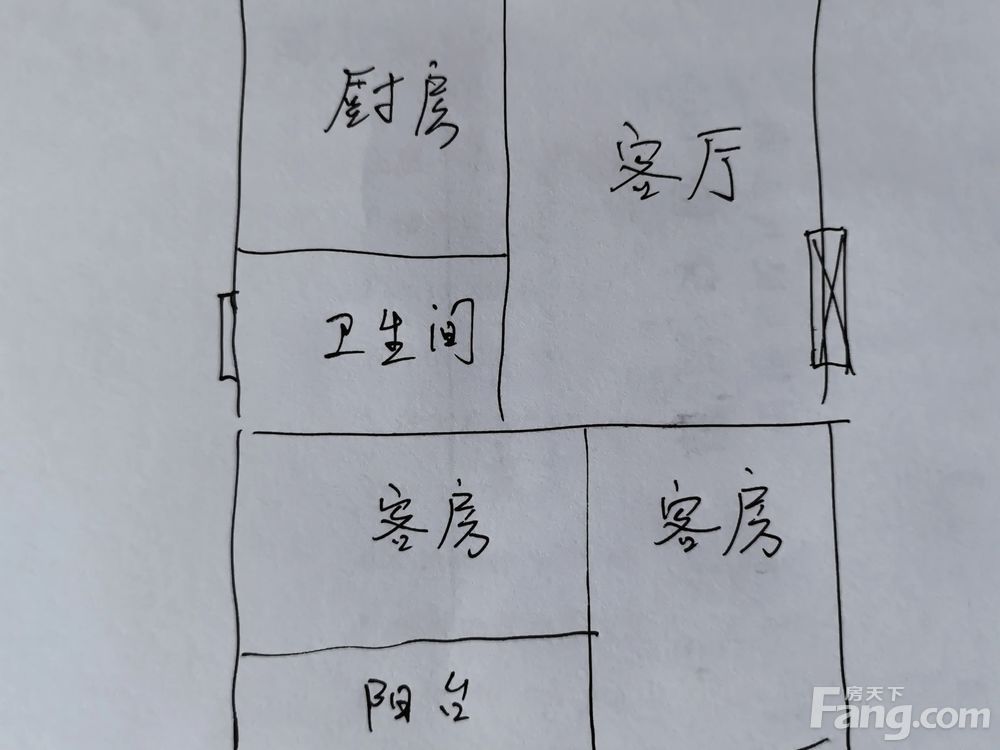 厨房
客厅
卫生间
客房
客房
阳台
房天下
Fang.com